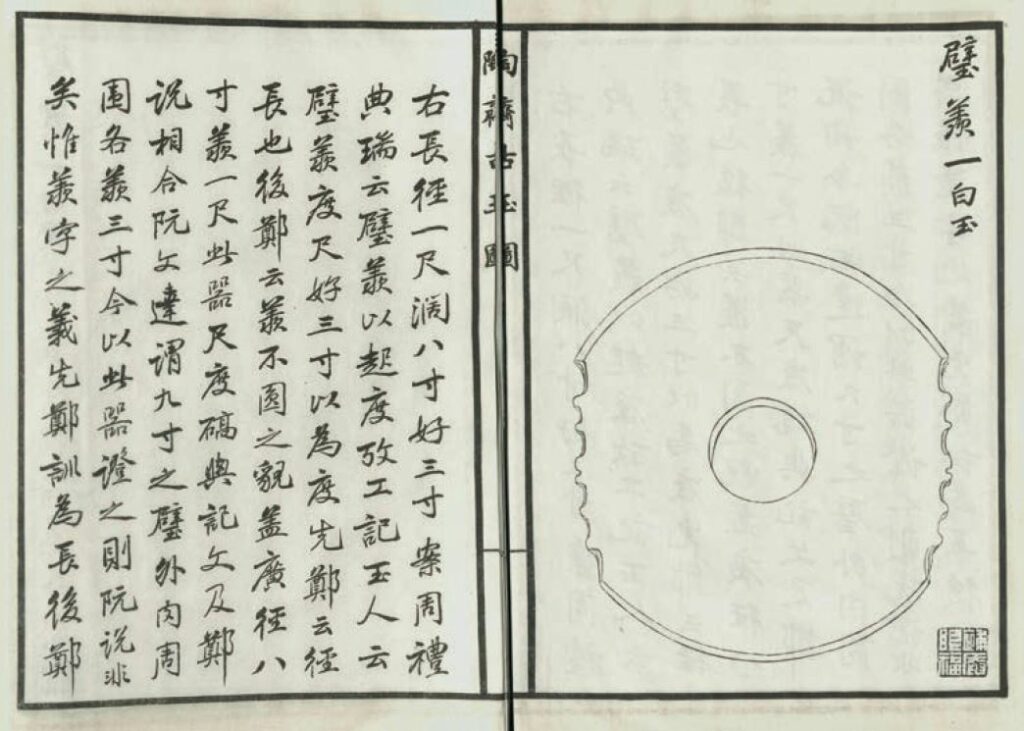 璧羨一白玉
陶齋古玉圖
右長徑一尺濶八寸好三寸案周禮
典瑞云璧羨以起度攷工記玉人云
璧羨度尺好三寸以為度先鄭云徑
長也後鄭云羨不圓之皃蓋廣徑八
寸羨一尺此器尺度碻與記文及鄭
說相合阮文達謂九寸之璧外肉周
圍各羨三寸今以此器證之則阮說非
矣惟羨字之義先鄭訓為長後鄭